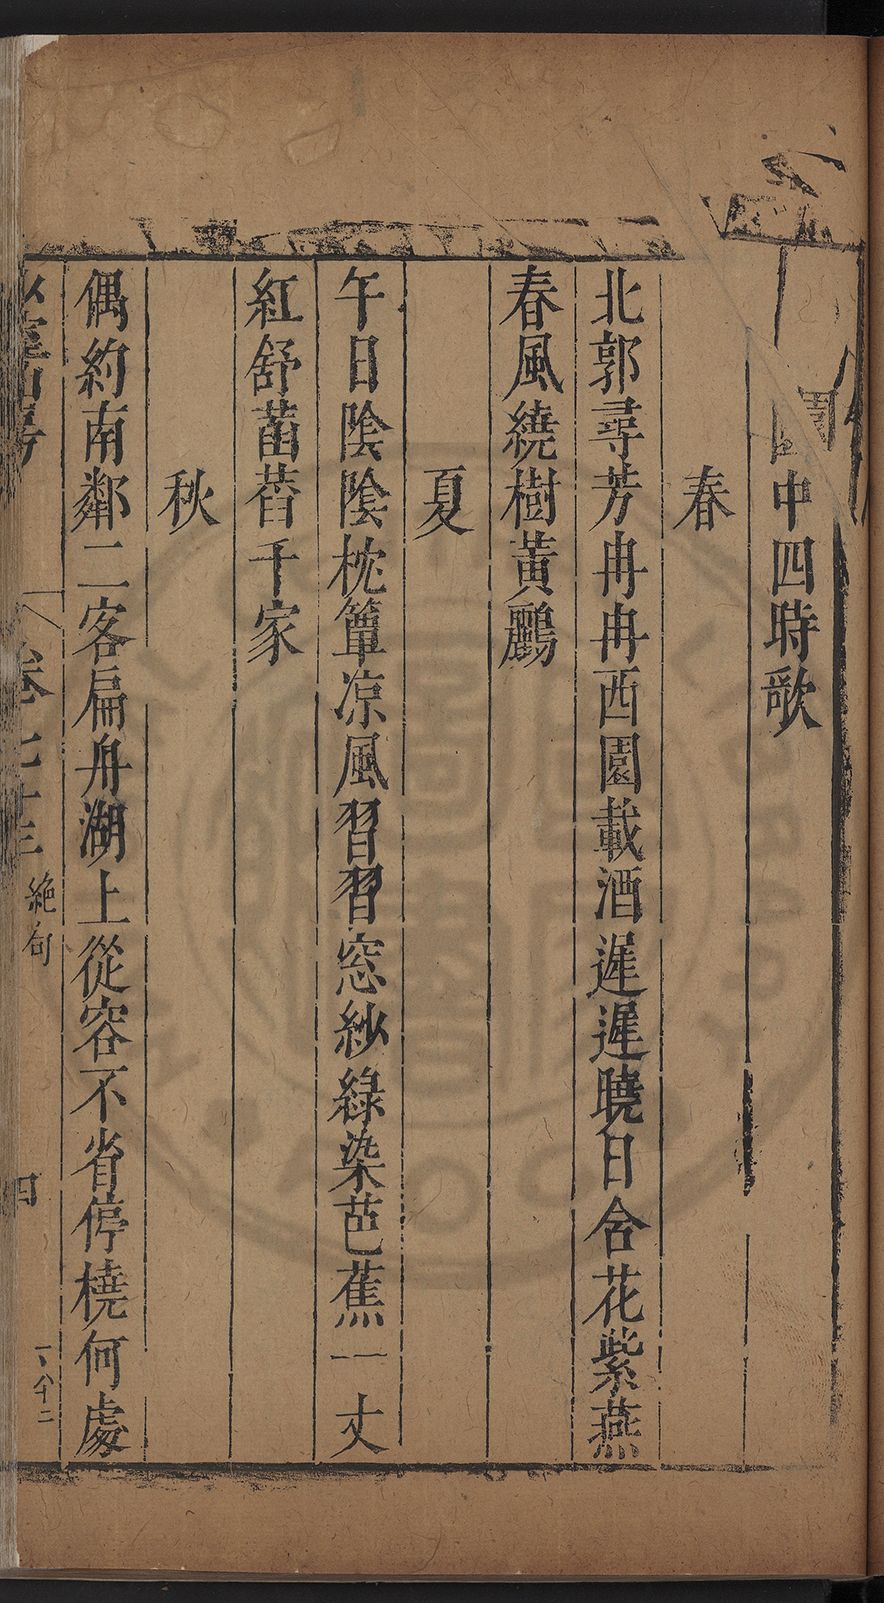 園中四時歌
春
北郭尋芳冉冉西園載酒遲遲曉日含花紫燕
春風繞樹黃鸝
夏
午日陰陰枕簟凉風習習窓紗綠染芭蕉一丈
紅舒菡萏千家
秋
偶約南鄰二客扁舟湖上從容不省停橈何處
山房
卷七十三
絶句
四
下八十二